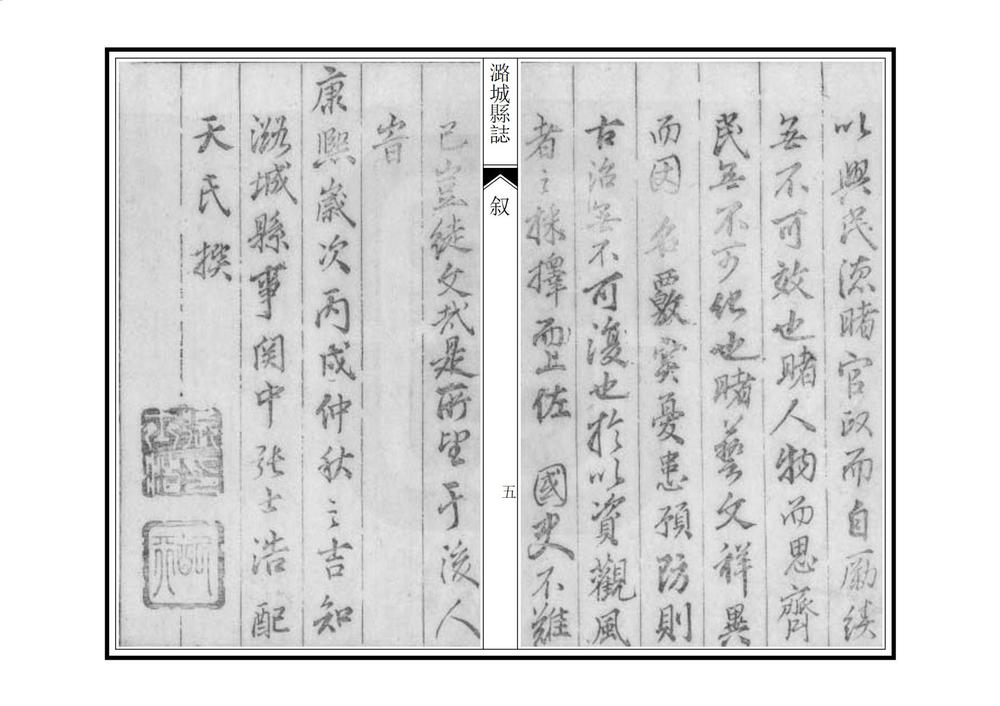 以興民法睹官政而自勵績
無不可效也睹人物而思齊
民無不可化也睹藝文祥異
而因名覈實憂患預防則
古治無不可復也於以資觀風
者之採擇而上佐 國史不難
潞城縣誌
叙
五
已豈徒文哉是所望于後人
旹
康熙歲次丙戌仲秋之吉知
潞城縣事関中張士浩配
天氏撰